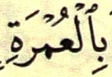 بِٱلۡعُمۡرَةِ